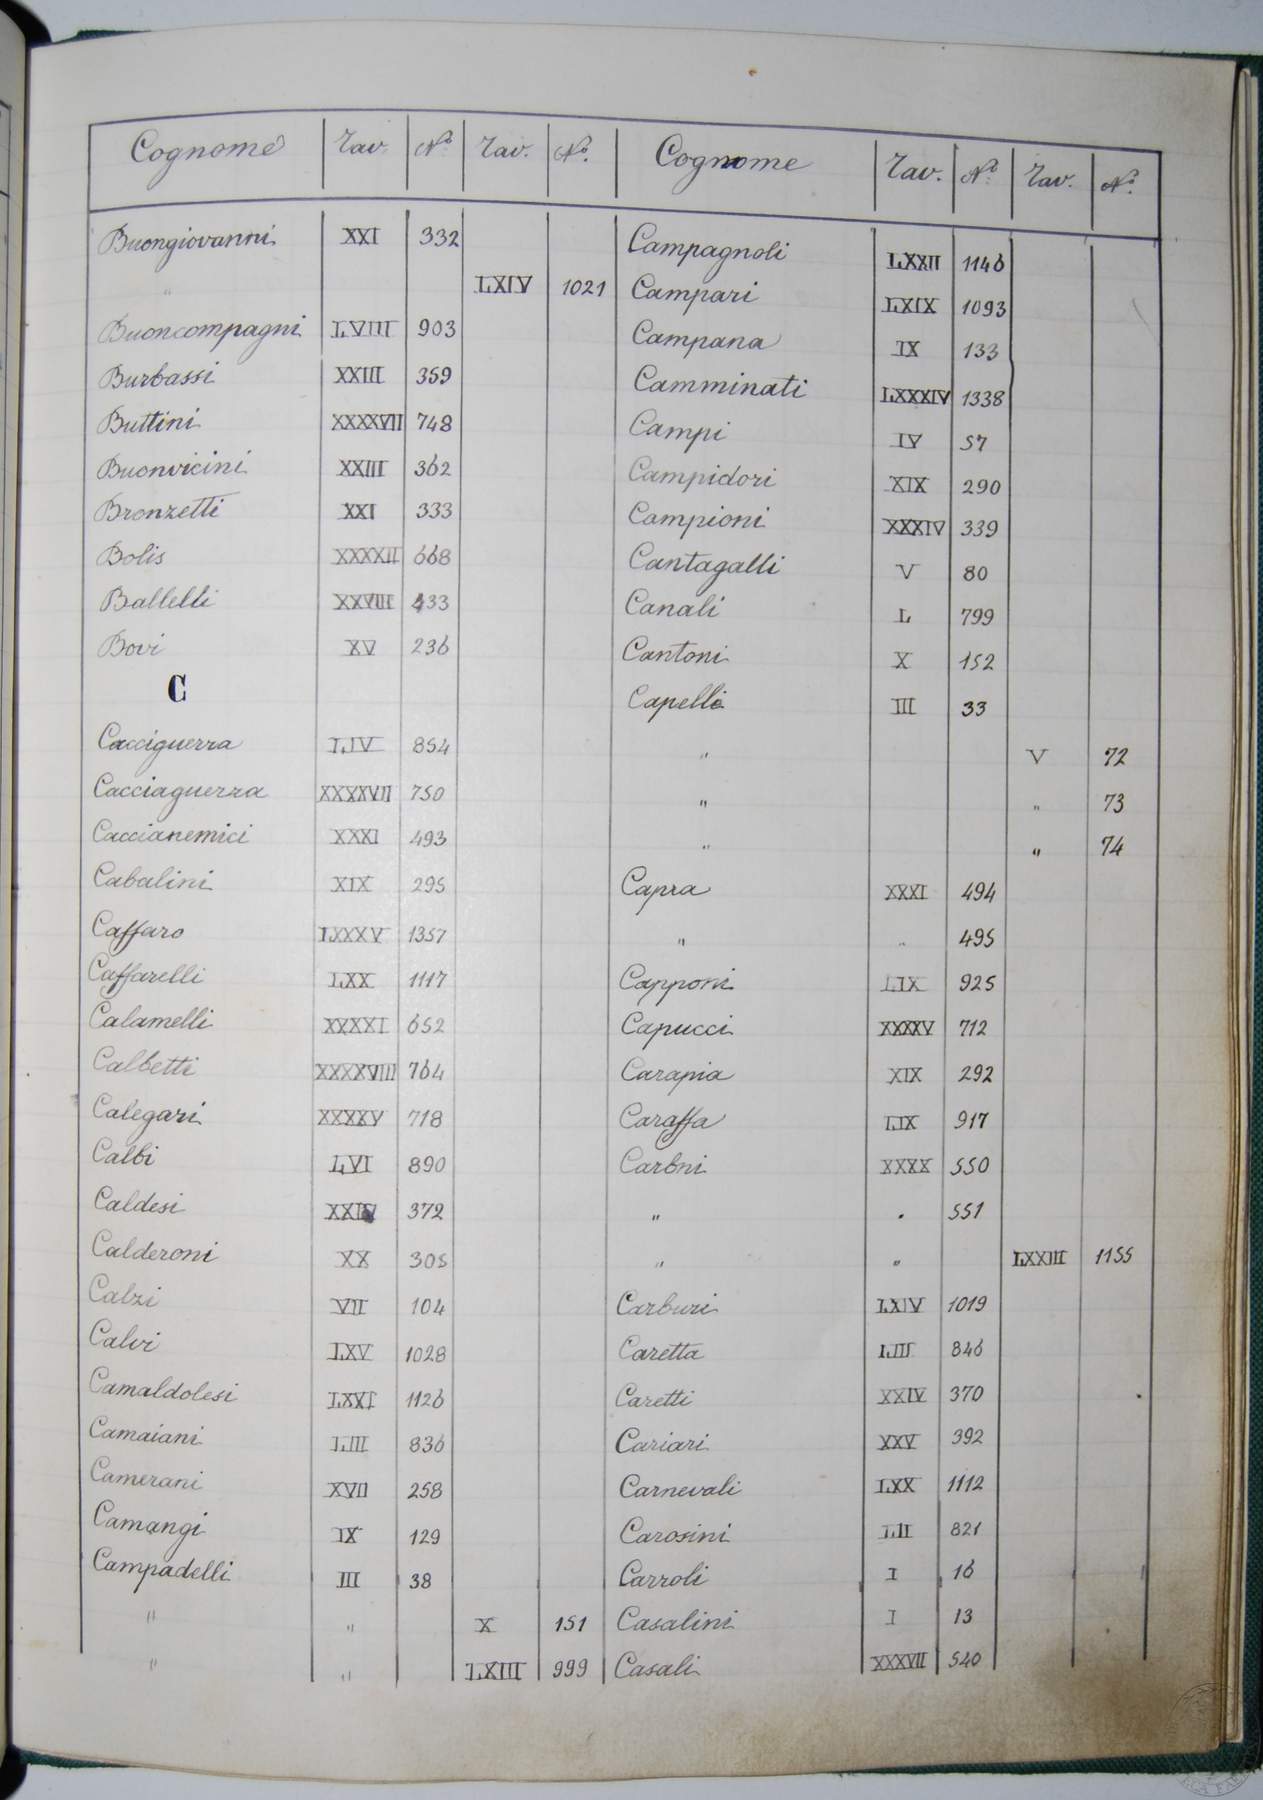 Cognome Tav. No Tav. No.
Buongiovanni XXI 332
" LXIV 1021
Buoncompagni LVIII 903
Burbassi XXIII 359
Buttini XXXXVII 748
Buonvicini XXIII 362
Bronzetti XXI 333
Bolis XXXXII 668
Ballelli XXVIII 433
Bovi XV 236
C
Cacciguerra LIV 854
Cacciaguerra XXXXVII 750
Caccianemici XXXI 493
Cabalini XIX 295
Caffaro LXXXV 1357
Caffarelli LXX 1117
Calamelli XXXXI 652
Calbetti XXXXVIII 764
Calegari XXXXV 718
Calbi LVI 890
Caldesi XXIV 372
Calderoni XX 305
Calzi VII 104
Calvi LXV 1028
Camaldolesi LXXI 1126
Camaiani LIII 836
Camerani XVII 258
Camangi IX 129
Campadelli III 38
" " X 151
" " LXIII 999
Cognome Tav. No Tav. No.
Campagnoli LXXII 1146
Campari LXIX 1093
Campana IX 133
Camminati LXXXIV 1338
Campi IV 57
Campidori XIX 290
Campioni XXXIV 339
Cantagalli V 80
Canali L 799
Cantoni X 152
Capelli III 33
" V 72
" " 73
" " 74
Capra XXXI 494
" " 495
Capponi LIX 925
Capucci XXXXV 712
Carapia XIX 292
Caraffa LIX 917
Carbni XXXX 550
" " 551
" " LXXIII 1155
Carburi LXIV 1019
Caretta LIII 846
Caretti XXIV 370
Cariari XXV 392
Carnevali LXX 1112
Carosini LII 821
Carroli I 16
Casalini I 13
Casali XXXVII 540